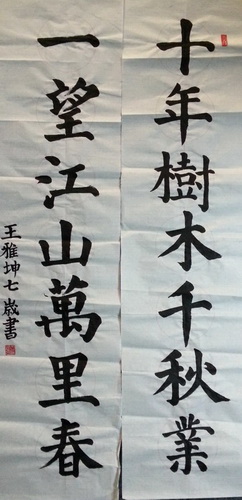 十年樹木千秋業
一望江山萬里春
王雅坤七歲書